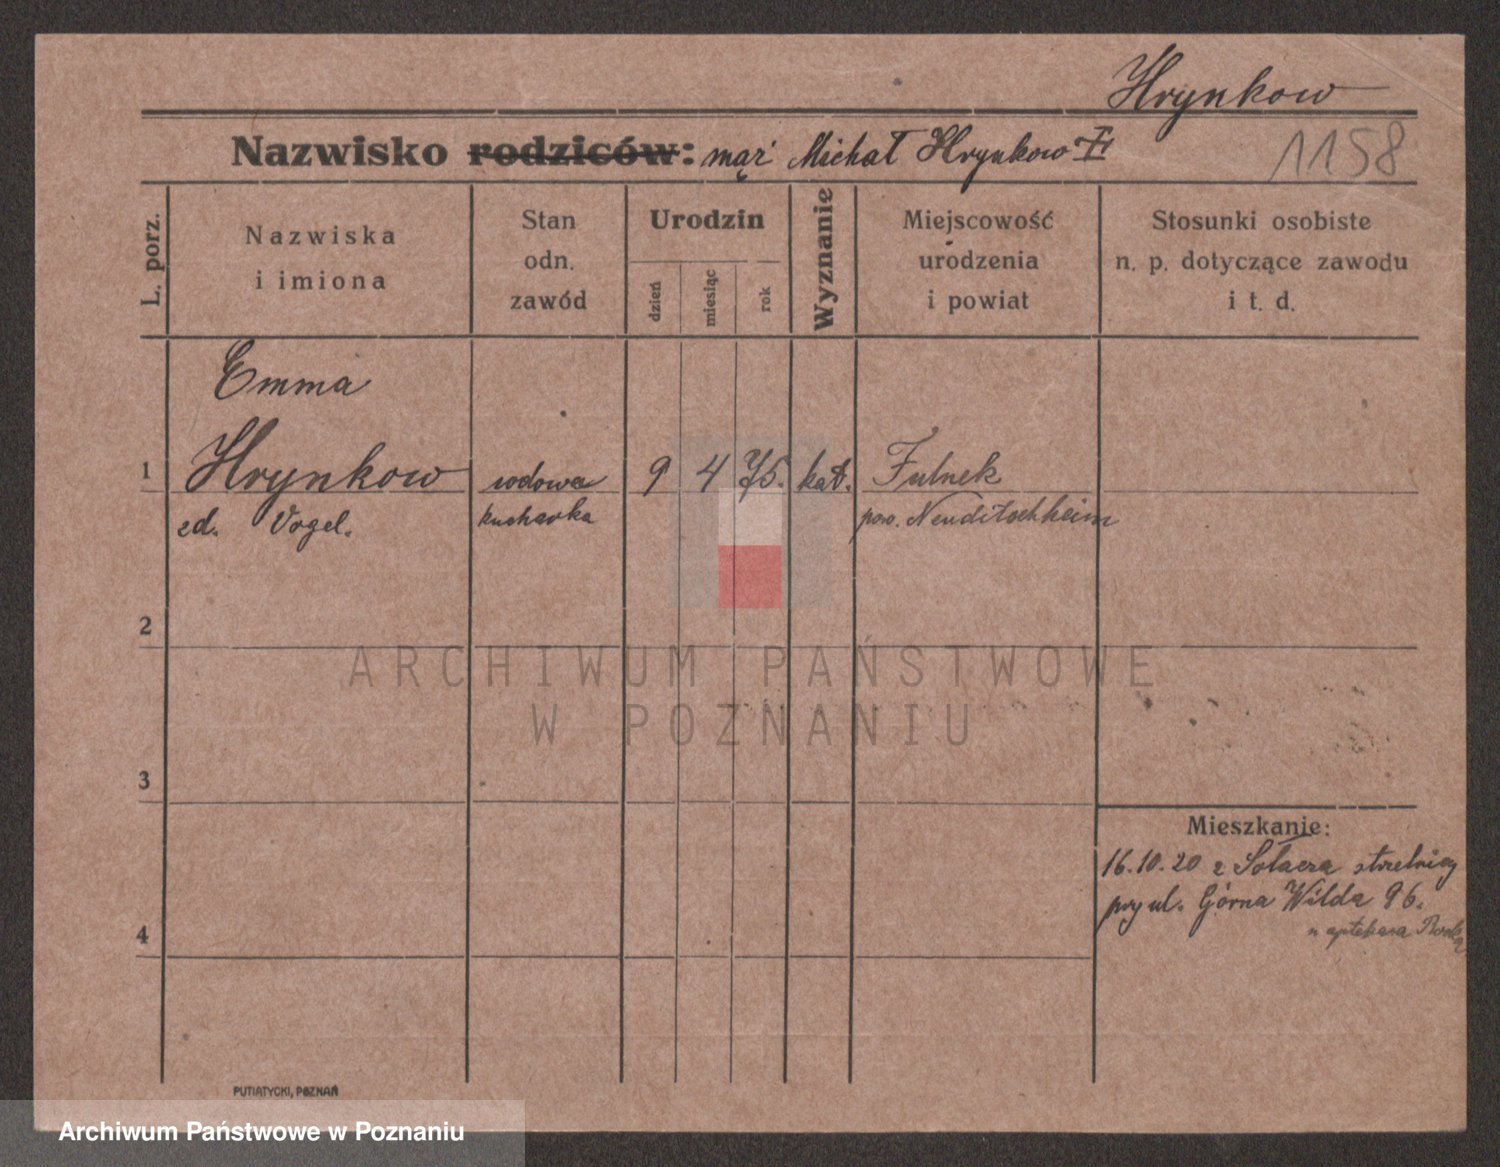 Hrynkow
Nazwisko rodziców: mąż Michał Hrynkow
1158
L. porz.
Nazwiska
i imiona
Stan
odn.
zawód
Urodzin
dzień
miesiąc
rok
Wyznanie
Miejscowość
urodzenia
i powiat
Stosunki osobiste
n. p. dotyczące zawodu
i t. d.
Emma
1 Hrynkow wdowa 9 4 75. kat. Fulnek
zd. Vogel. kucharka pow. Neuditschheim
2
ARCHIWUM PAŃSTWOWE
W POZNANIU
3
Mieszkanie:
16.10.20 z Sołacza strzelnicy
przy ul. Górna Wilda 96.
4
aptekarza
PUTIATYCKI, POZNAŃ
Archiwum Państwowe w Poznaniu